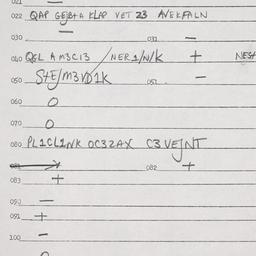 021 —
022 QAP GEJB+A KLAP VET 23 AVEKFALN
—
030 031 —
040 QGL A M3C13 / NER1/N/K + NEST
050 S+E/M3VD1K 051 —
060 O
070 O
080 PL1CL1NK OC3ZAX C3VEJNT
081 → 082 +
083 +
090 —
091 +
100 —
O